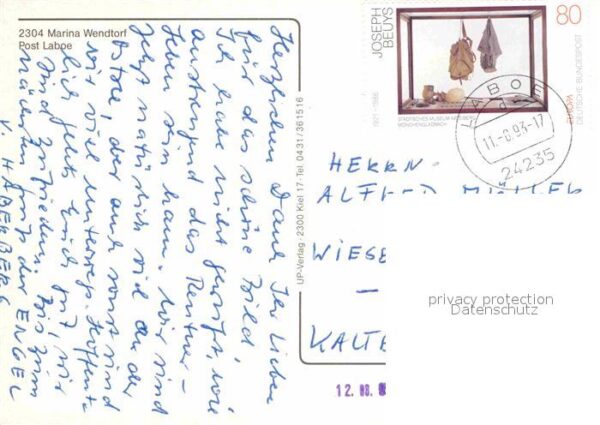 2304 Marina Wendtorf
Post Laboe
Herzlichen Dank Ihr Lieben
für das schöne Bild,
Ich habe nicht gewußt, wie
anstrengend das Rentner-
leben sein kann. Wir sind
jetzt natürlich viel an der
Ostsee, aber auch sonst sind
wir viel unterwegs. Hoffent-
lich geht's Euch gut, wir
sind zufrieden. Bis zum
nächsten Gruß der ENGEL
V. HABERBERG
UP-Verlag · 2300 Kiel 17 · Tel. 0431/361516
JOSEPH
BEUYS
1921 - 1986
80
STÄDTISCHES MUSEUM ABTEIBERG
MÖNCHENGLADBACH
EUROPA
DEUTSCHE BUNDESPOST
LABOE
11.-8.93-17
24235
HERRN
ALFRED
WIESE
–
KALTE
12. 08.
privacy protection
Datenschutz